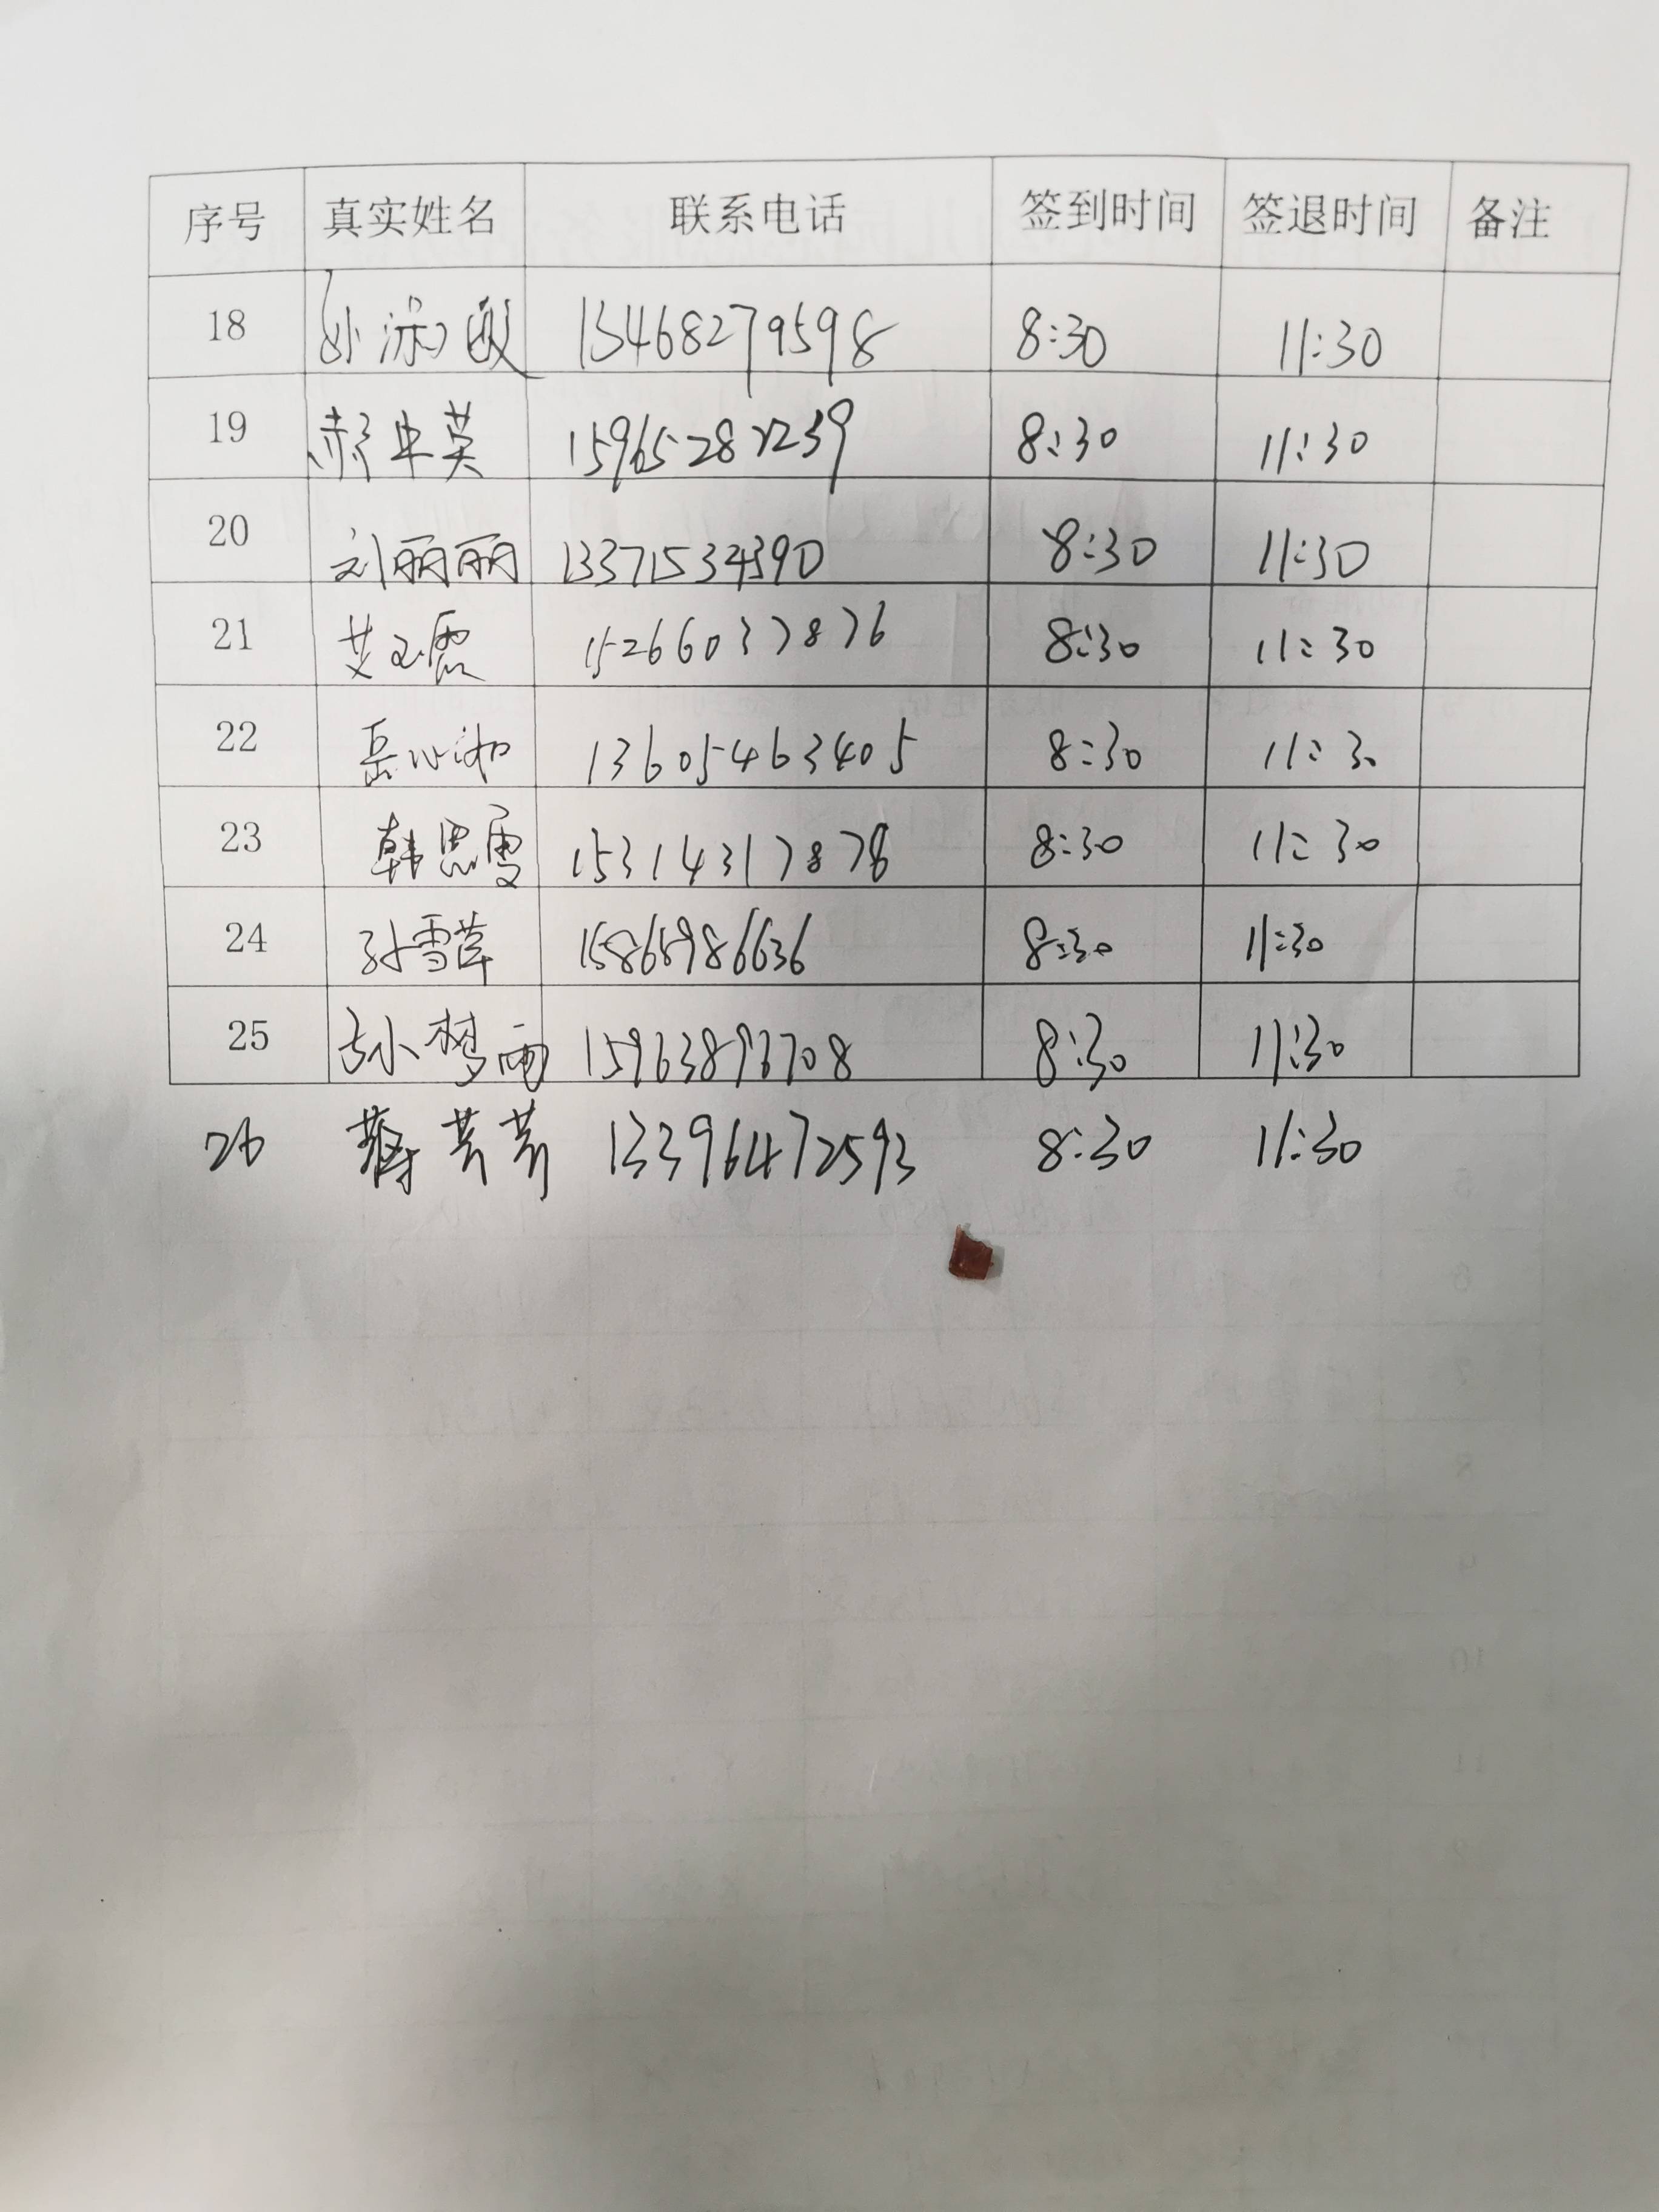 序号 真实姓名 联系电话 签到时间 签退时间 备注
18 13468279598 8:30 11:30
19 郝中英 15965287239 8:30 11:30
20 刘丽丽 13371534390 8:30 11:30
21 艾文霞 15266037876 8:30 11:30
22 岳心湘 13605463405 8:30 11:30
23 韩思雪 15314317878 8:30 11:30
24 孙雪萍 15865986636 8:30 11:30
25 孙梦雨 15963893708 8:30 11:30
26 蔣芳芳 13396472593 8:30 11:30